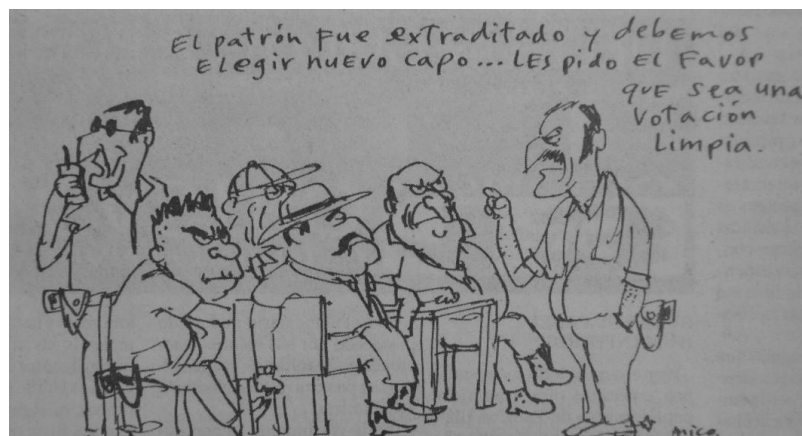 El patrón fue extraditado y debemos
Elegir nuevo capo... Les pido el favor
que sea una
votación
limpia.
mico